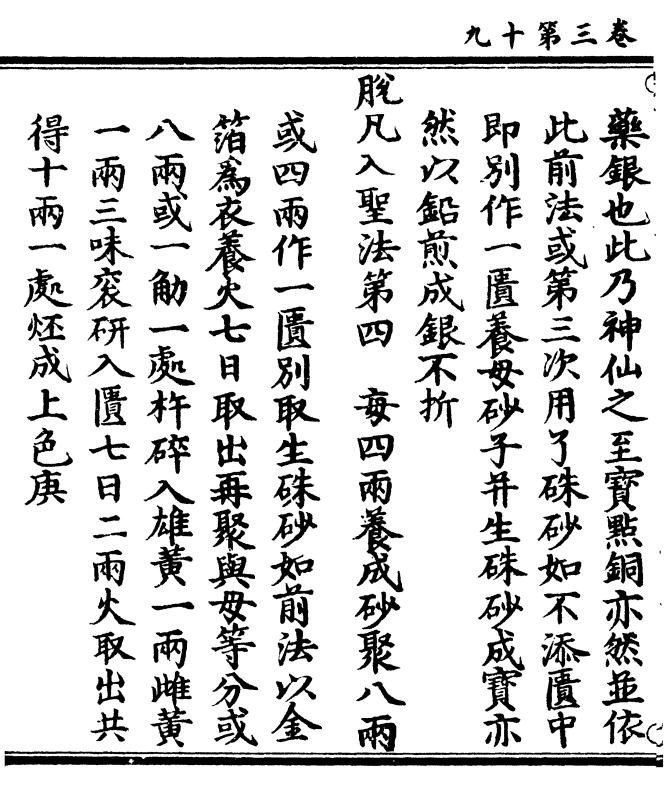 卷三第十九
藥銀也此乃神仙之至寶點銅亦然並依
此前法或第三次用了硃砂如不添匱中
即別作一匱養母砂子并生硃砂成寶亦
然以鉛煎成銀不折
脫凡入聖法第四　每四兩養成砂聚八兩
或四兩作一匱別取生硃砂如前法以金
箔為衣養火七日取出再聚與母等分或
八兩或一觔一處杵碎入雄黃一兩雌黃
一兩三味衮研入匱七日二兩火取出共
得十兩一處烀成上色庚